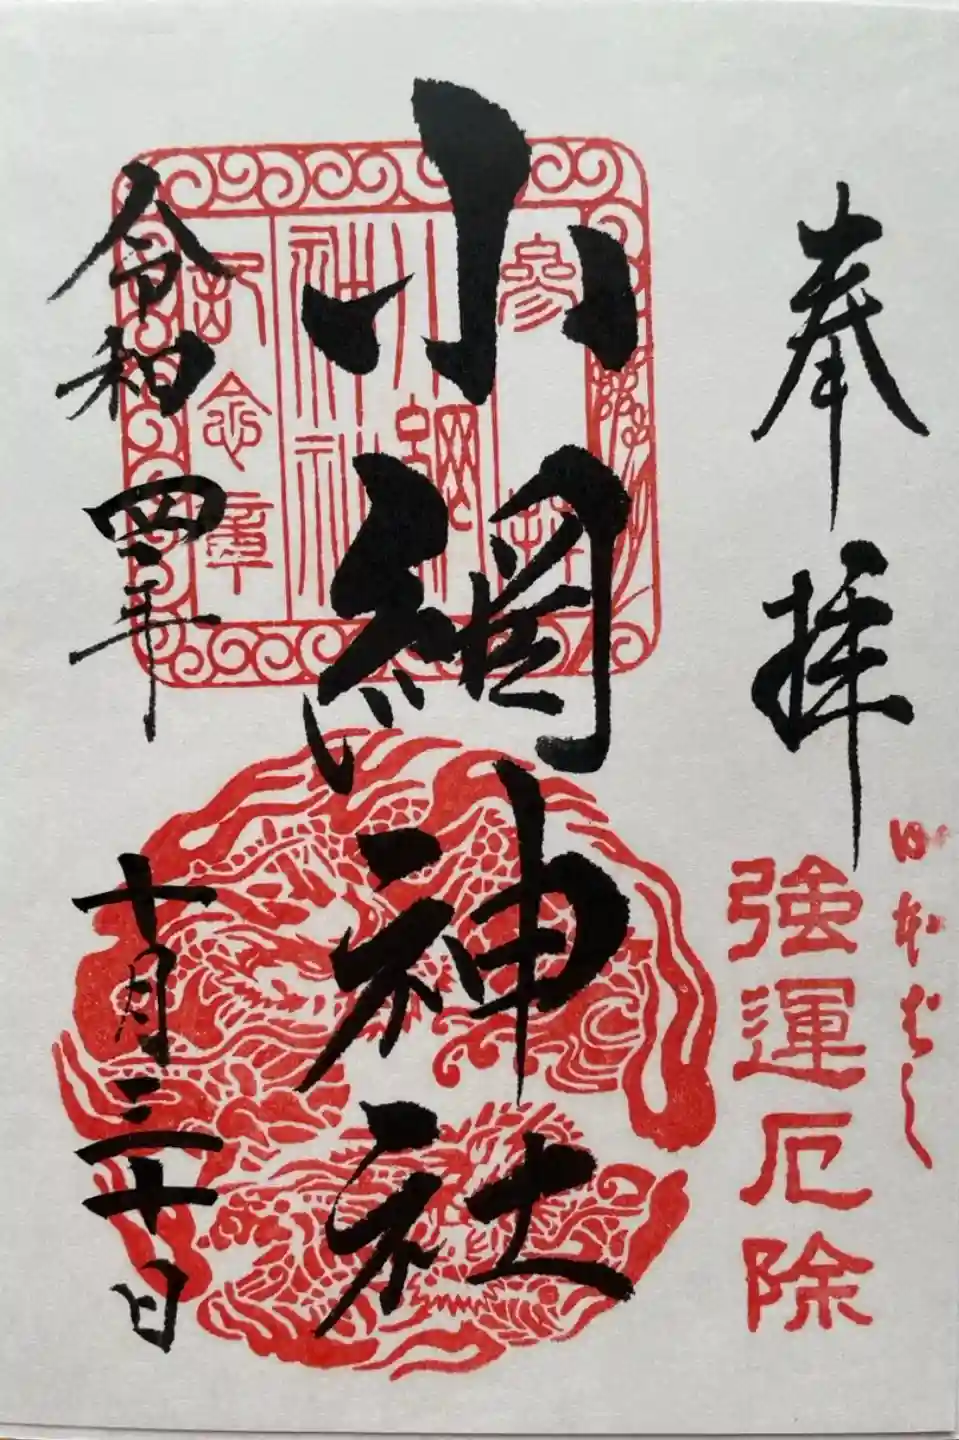 奉拝
日本ばし
強運厄除
小網神社
參拝
小網神社
記念章
令和四年
十月三十日